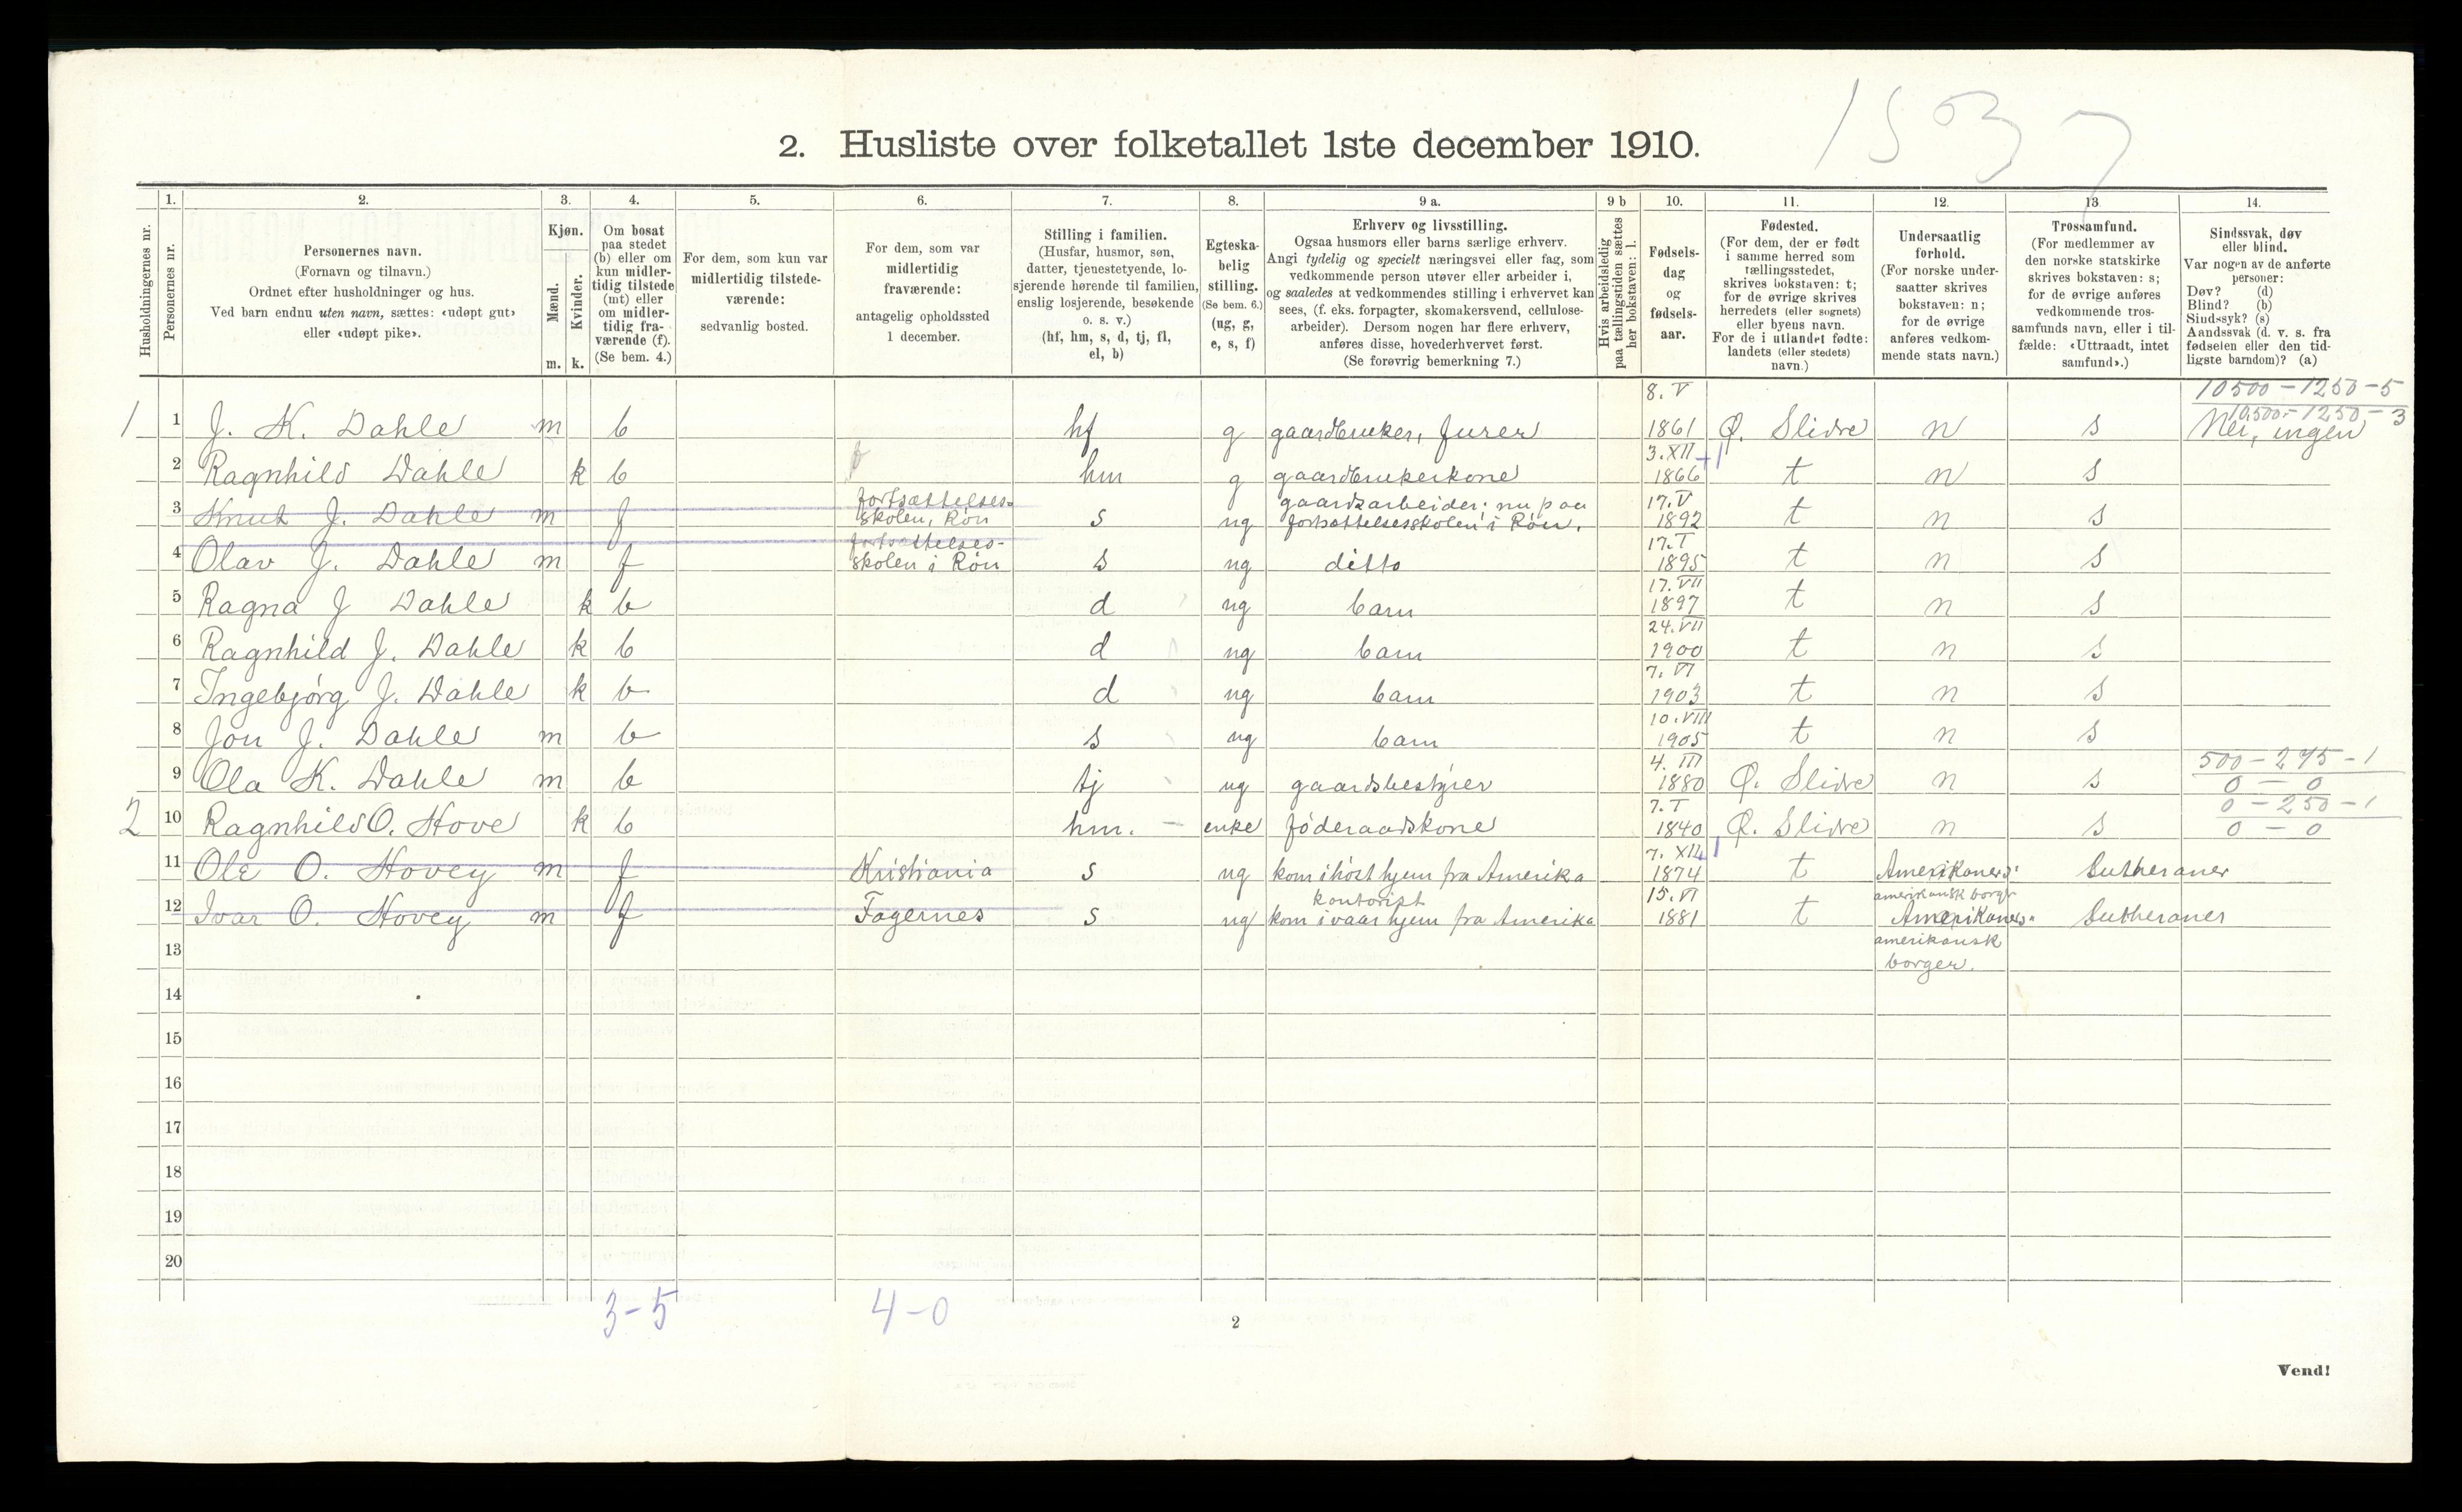 1503 7
2. Husliste over folketallet 1ste december 1910.
Husholdningernes nr.
1. Personernes nr.
2. Personernes navn.
(Fornavn og tilnavn.)
Ordnet efter husholdninger og hus.
Ved barn endnu uten navn, sættes: «udøpt gut»
eller «udøpt pike».
3. Kjøn.
Mænd. m.
Kvinder. k.
4. Om bosat
paa stedet
(b) eller om
kun midler-
tidig tilstede
(mt) eller
om midler-
tidig fra-
værende (f).
(Se bem. 4.)
5. For dem, som kun var
midlertidig tilstede-
værende:
sedvanlig bosted.
6. For dem, som var
midlertidig
fraværende:
antagelig opholdssted
1 december.
7. Stilling i familien.
(Husfar, husmor, søn,
datter, tjenestetyende, lo-
sjerende hørende til familien,
enslig losjerende, besøkende
o. s. v.)
(hf, hm, s, d, tj, fl,
el, b)
8. Egteska-
belig
stilling.
(Se bem. 6.)
(ug, g,
e, s, f)
9 a. Erhverv og livsstilling.
Ogsaa husmors eller barns særlige erhverv.
Angi tydelig og specielt næringsvei eller fag, som
vedkommende person utøver eller arbeider i,
og saaledes at vedkommendes stilling i erhvervet kan
sees, (f. eks. forpagter, skomakersvend, cellulose-
arbeider). Dersom nogen har flere erhverv,
anføres disse, hovederhvervet først.
(Se forøvrig bemerkning 7.)
9 b Hvis arbeidsledig
paa tællingstiden sættes
her bokstaven: l.
10. Fødsels-
dag
og
fødsels-
aar.
11. Fødested.
(For dem, der er født
i samme herred som
tællingsstedet,
skrives bokstaven: t;
for de øvrige skrives
herredets (eller sognets)
eller byens navn.
For de i utlandet fødte:
landets (eller stedets)
navn.)
12. Undersaatlig
forhold.
(For norske under-
saatter skrives
bokstaven: n;
for de øvrige
anføres vedkom-
mende stats navn.)
13. Trossamfund.
(For medlemmer av
den norske statskirke
skrives bokstaven: s;
for de øvrige anføres
vedkommende tros-
samfunds navn, eller i til-
fælde: «Uttraadt, intet
samfund».)
14. Sindssvak, døv
eller blind.
Var nogen av de anførte
personer:
Døv? (d)
Blind? (b)
Sindssyk? (s)
Aandssvak (d. v. s. fra
fødselen eller den tid-
ligste barndom)? (a)
8. V 10500-1250-5
10,500-1250-3
1 1 J. K. Dahle m b hf g gaardbruker, furer 1861 Ø. Slidre n s Nei, ingen
3. XII
2 Ragnhild Dahle k b hm g gaardbrukerkone 1866 t n s
fortsættelses- gaardsarbeider; nu paa 17. V
3 Knut J. Dahle m f skolen, Røn s ug fortsættelsesskolen i Røn. 1892 t n s
fortsættelses- 17. I
4 Olav J. Dahle m f skolen i Røn s ug ditto 1895 t n s
17. VII
5 Ragna J Dahle k b d ug barn 1897 t n s
24. VII
6 Ragnhild J. Dahle k b d ug barn 1900 t n s
7. VI
7 Ingebjørg J. Dahle k b d ug barn 1903 t n s
10. VIII
8 Jon J. Dahle m b s ug barn 1905 t n s
4. III 500-275-1
9 Ola K. Dahle m b tj ug gaardsbestyrer 1880 Ø. Slidre n s 0-0
7. I 0-250-1
2 10 Ragnhild O. Hove k b hm. - enke føderaadskone 1840 Ø. Slidre n s 0-0
7. XII
11 Ole O. Hovey m f Kristiania s ug kom i høst hjem fra Amerika 1874 t Amerikaner: Lutheraner
kontorist 15. VI amerikansk borger
12 Ivar O. Hovey m f Fagernes s ug kom i vaar hjem fra Amerika 1881 t Amerikaner: Lutheraner
13 amerikansk
borger.
14
15
16
17
18
19
20
3-5 4-0
2
Vend!